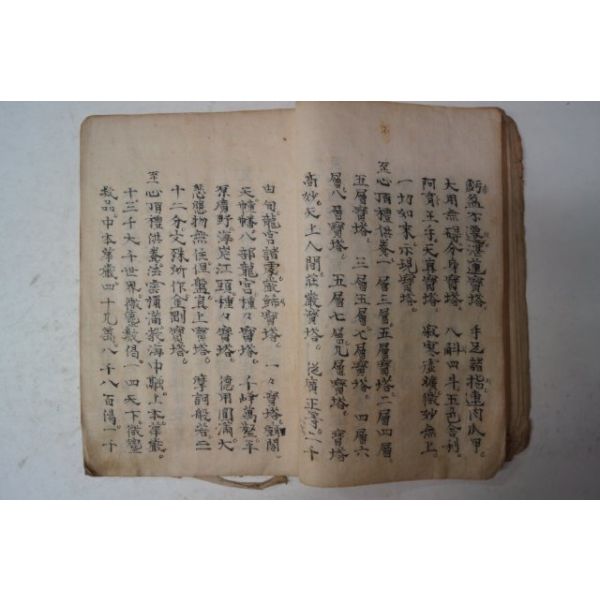 虧盈不遷運運寶塔 手足諸指連肉爪甲
大用無碍分身寶塔 八斛四斗五色舍利
阿育王手天眞寶塔 寂寞虛曠微妙無上
一切如來示現寶塔
至心頂禮供養一層三層五層寶塔二層四層
五層寶塔 三層五層七層寶塔 四層六
層八層寶塔 五層七層九層寶塔 寶塔
高妙天上人間莊嚴寶塔 一千
由旬龍宮諸 寶塔 一々寶塔
天 幡八部龍宮種々寶塔 千峰萬壑平
原廣野海岸江頭種々寶塔 德用圓滿大
慈態物無住恒盤直上寶塔 摩訶般若二
十二分文殊所作金剛寶塔
至心頂禮供養法雲預滿敎海中融上本華嚴
十三千大千世界微塵數偈 一四天下微塵
數品 中本華嚴四十九萬八千八百偈 一千